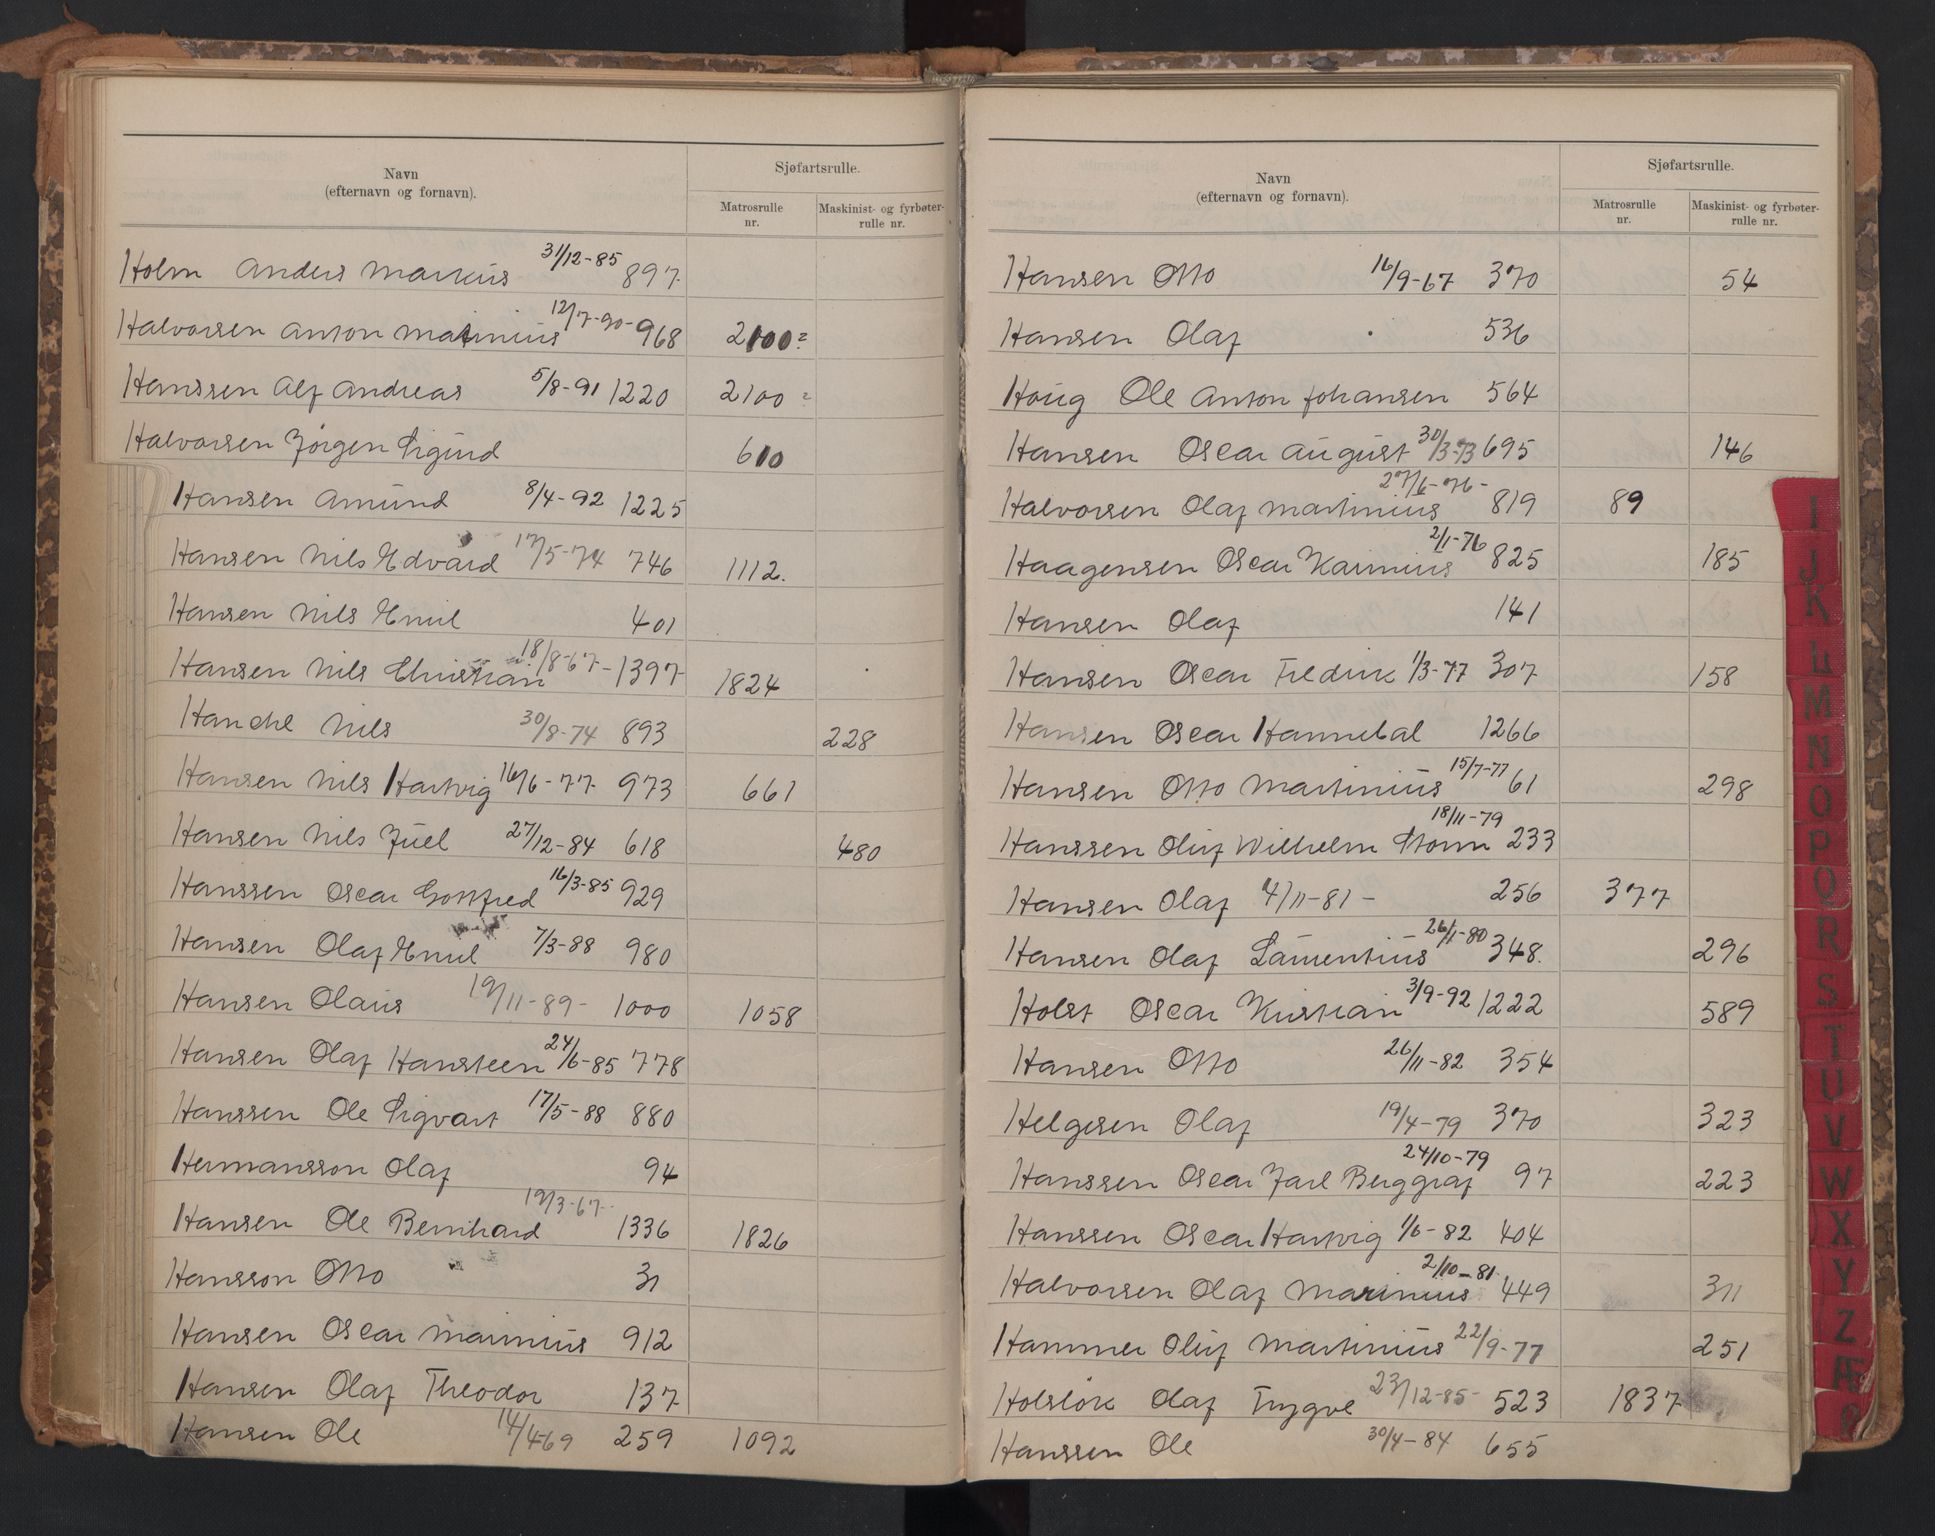 Navn
(efternavn og fornavn).
Sjøfartsrulle.
Matrosrulle nr.
Maskinist- og fyrbøter-rulle nr.
Holm Anders Markus 31/12-85 897
Halvorsen Anton Martinius 12/7-90- 968 2100?
Hanssen Alf Andreas 5/8-91 1220 2100?
Halvorsen Jørgen Sigurd 610
Hansen Amund 8/4-92 1225
Hansen Nils Edvard 17/5-74 746 1112.
Hansen Nils Emil 401
Hansen Nils Christian 18/8-67- 1397 1824
Nils 30/8-74 893 228
Hansen Nils Hartvig 16/6-77 973 661
Hansen Nils Juel 27/12-84 618 480
Hanssen Oscar Gottfred 16/3-85 929
Hansen Olaf Emil 7/3-88 980
Hansen Olaus 19/11-89- 1000 1058
Hansen Olaf Hansteen 24/6-85 778
Hanssen Ole Sigvart 17/5-88 880
Hermansson Olaf 94
Hansen Ole Bernhard 19/3-67- 1336 1826
Hansson Otto 31
Hansen Oscar Marinius 912
Hansen Olaf Theodor 137
Hansen Ole 14/4-69 259 1092
Navn
(efternavn og fornavn).
Sjøfartsrulle.
Matrosrulle nr.
Maskinist- og fyrbøter-rulle nr.
Hansen Otto 16/9-67 370 54
Hansen Olaf 536
Houg Ole Anton Johansen 564
Hansen Oscar August 30/3-73 695 146
Halvorsen Olaf Martinius 27/6-76- 819 89
Haagensen Oscar Karinius 2/1-76 825 185
Hansen Olaf 141
Hansen Oscar Fredrik 1/3-77 307 158
Hansen Oscar Hannebal 1266
Hansen Otto Martinius 15/7-77 61 298
Hanssen Oluf Wilhelm Storm 18/11-79 233
Hansen Olaf 4/11-81- 256 377
Hansen Olaf Laurentius 26/1-80 348. 296
Holst Oscar Kristian 3/9-92 1222 589
Hansen Otto 26/11-82 354
Helgesen Olaf 19/4-79 370 323
Hanssen Oscar Jarl Berggraf 24/10-79 97 223
Hanssen Oscar Hartvig 1/6-82 404
Halvorsen Olaf Marinius 2/10-81 449 311
Hammer Oluf Martinius 22/9-77 251
Olaf Trygve 23/12-85- 523 1837
Hanssen Ole 30/4-84 655
I
J
K
L
M
N
O
P
Q
R
S
T
U
V
W
X
Y
Z
Æ
Ø